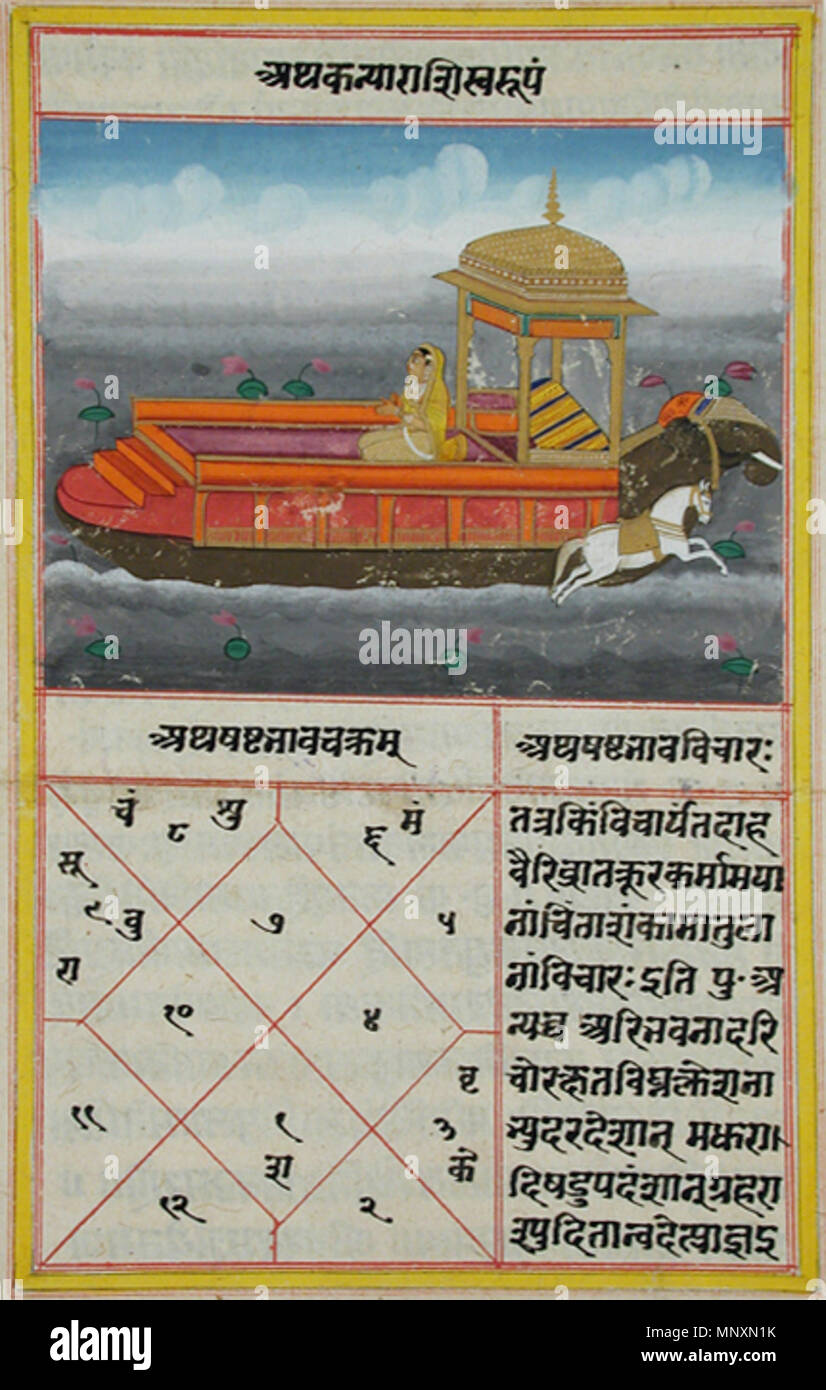 अथकन्याराशिस्वरूपं
अथषष्टभावचक्रम्
अथषष्टभावविचारः
चं ८ शु
६ मं
सू
९ बु
७
५
रा
१०
४
११
१
श
३
के
१२
२
तत्रकिंविचार्यंतदाह
वैरिव्रातक्रूरकर्मामया
नांचिंताशंकामातुला
नांविचारः इति पु॰ अ
न्यच्च अरिभवनादरि
चोरक्षतविघ्नक्लेशना
भ्युदरदेशान् मकरा
alamy
Image ID: MNXN1K
www.alamy.com